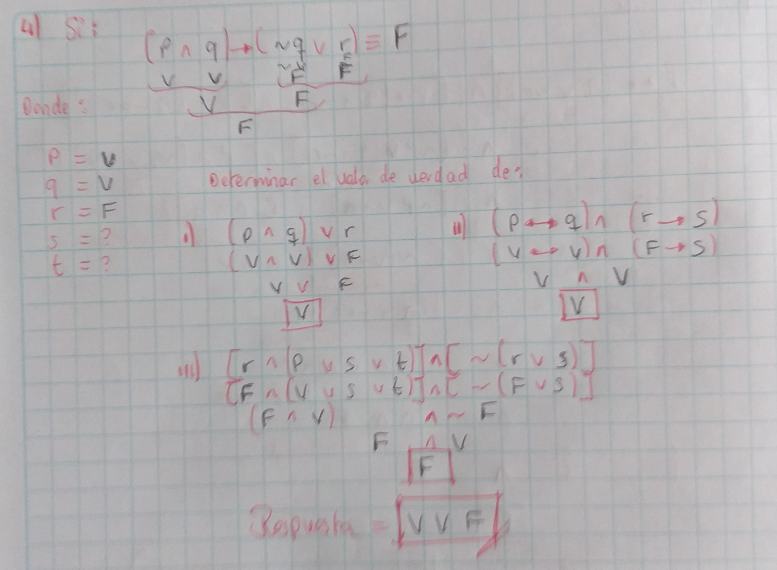 4) Si:
(p ∧ q) → (~q ∨ r) ≡ F
V V ~V F
F
V F
F
Donde:
p = V
q = V
r = F
s = ?
t = ?
Determinar el valo de verdad de:
i) (p ∧ q) ∨ r
(V ∧ V) ∨ F
V ∨ F
V
ii) (p ↔ q) ∧ (r → s)
(V ↔ V) ∧ (F → S)
V ∧ V
V
iii) [r ∧ (p ∨ s ∨ t)] ∧ [~(r ∨ s)]
[F ∧ (V ∨ s ∨ t)] ∧ [~(F ∨ s)]
(F ∧ V) ∧ ~ F
F ∧ V
F
Respuesta = V V F